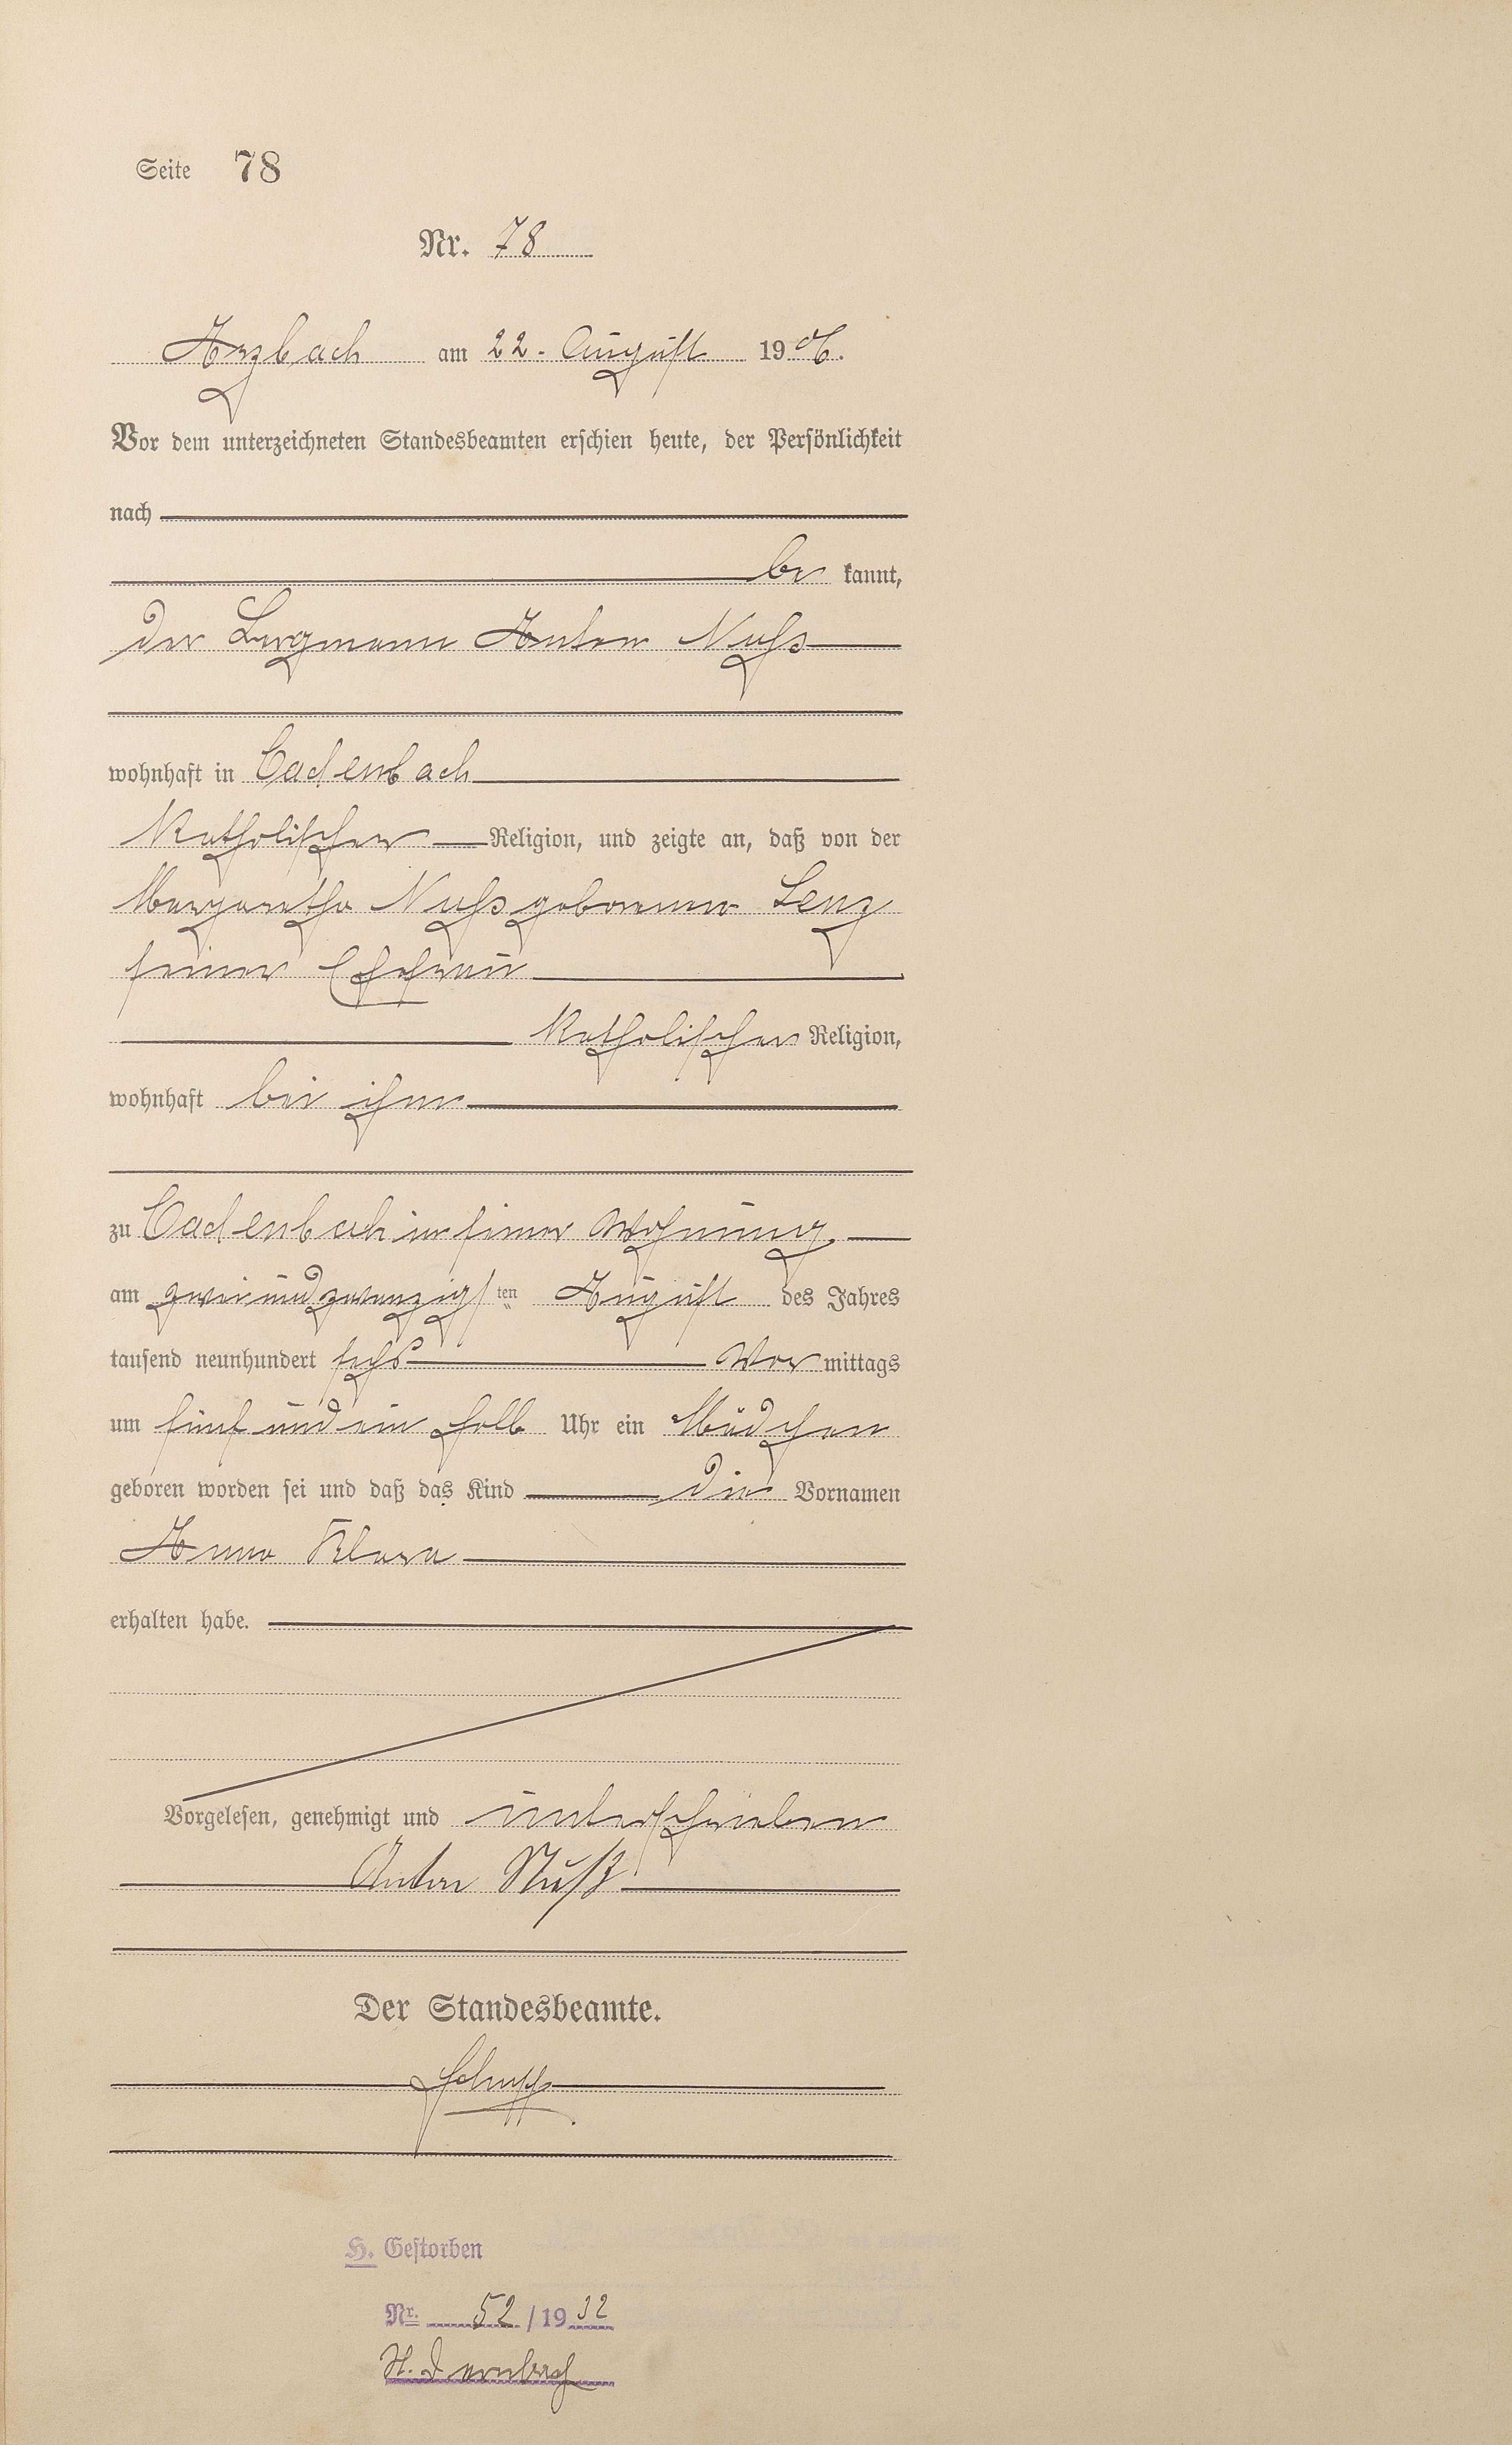 Seite 78
Nr. 78
Arzbach am 22. August 1906.
Vor dem unterzeichneten Standesbeamten erschien heute, der Persönlichkeit
nach
be kannt,
der Bergmann Anton Nuß
wohnhaft in Cadenbach
Katholischer Religion, und zeigte an, daß von der
Margaretha Nuß geborenen Lenz
seiner Ehefrau
Katholischer Religion,
wohnhaft bei ihm
zu Cadenbach in seiner Wohnung
am zweiundzwanzigsten August des Jahres
tausend neunhundert sechs Vor mittags
um fünf und ein halb Uhr ein Mädchen
geboren worden sei und daß das Kind die Vornamen
Anna Klara
erhalten habe.
Vorgelesen, genehmigt und unterschrieben
Anton Nuß
Der Standesbeamte.
Schupp
H. Gestorben
Nr. 52/1932
St. A. Dernbach